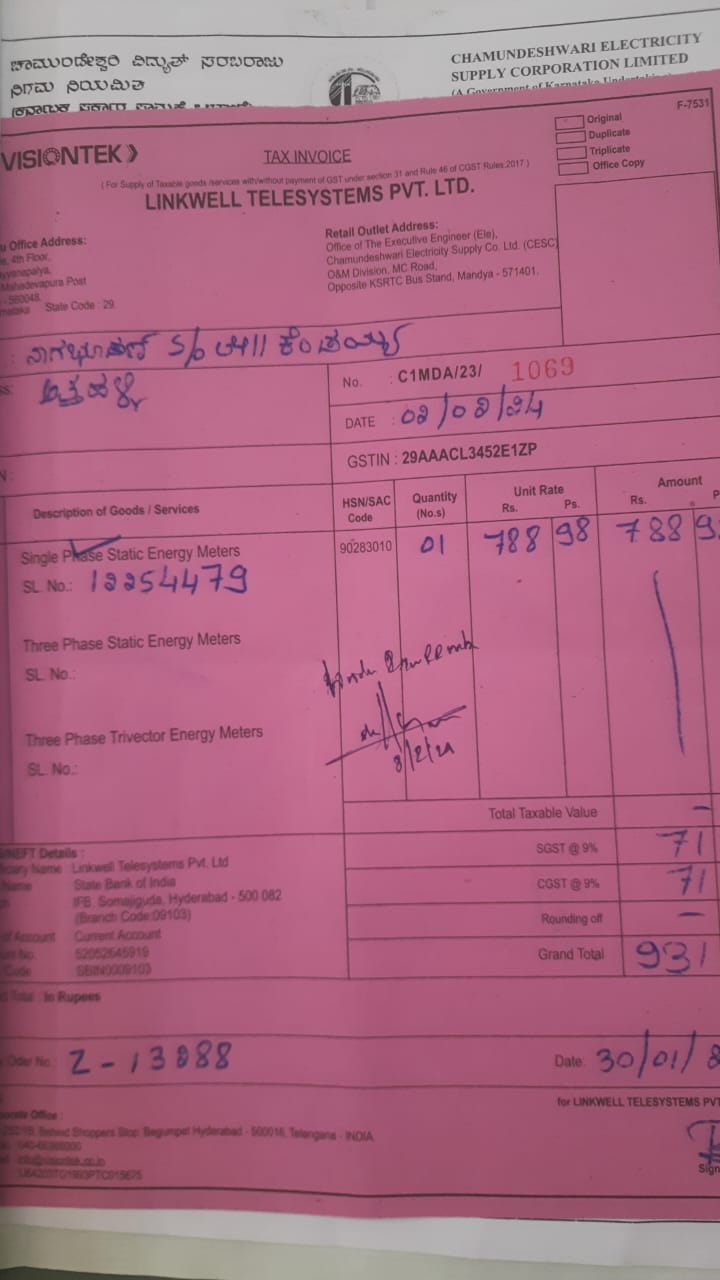 ಚಾಮುಂಡೇಶ್ವರಿ ವಿದ್ಯುತ್ ಸರಬರಾಜು
ನಿಗಮ ನಿಯಮಿತ
CHAMUNDESHWARI ELECTRICITY
SUPPLY CORPORATION LIMITED
(A Government of Karnataka Undertaking)
F-7531
Original
Duplicate
Triplicate
Office Copy
VISIONTEK
TAX INVOICE
( For Supply of Taxable goods /services with/without payment of GST under section 31 and Rule 46 of CGST Rules,2017 )
LINKWELL TELESYSTEMS PVT. LTD.
Office Address:
4th Floor,
Mahadevapura Post
- 560048.
State Code : 29.
Retail Outlet Address:
Office of The Executive Engineer (Ele),
Chamundeshwari Electricity Supply Co. Ltd. (CESC)
O&M Division, MC Road,
Opposite KSRTC Bus Stand, Mandya - 571401.
No. : C1MDA/23/ 1069
DATE : 02/02/24
GSTIN : 29AAACL3452E1ZP
Description of Goods / Services
HSN/SAC Code
Quantity (No.s)
Unit Rate Rs. Ps.
Amount Rs. P
Single Phase Static Energy Meters 90283010 01 788 98 788 9
SL. No.: 12254479
Three Phase Static Energy Meters
SL. No.:
Three Phase Trivector Energy Meters
SL. No.:
8/2/24
Total Taxable Value –
SGST @ 9% 71
CGST @ 9% 71
Rounding off –
Grand Total 931
NEFT Details :
Name : Linkwell Telesystems Pvt. Ltd
Name State Bank of India
IFB, Somajiguda, Hyderabad - 500 082
(Branch Code:09103)
of Account Current Account
No. 52052645919
Code : SBIN0009103
Total : In Rupees
Oder No : Z-13288
Date: 30/01/
for LINKWELL TELESYSTEMS PVT
Office :
Behind Shoppers Stop, Begumpet Hyderabad - 500016, Telangana - INDIA
info@visiontek.co.in
Sign